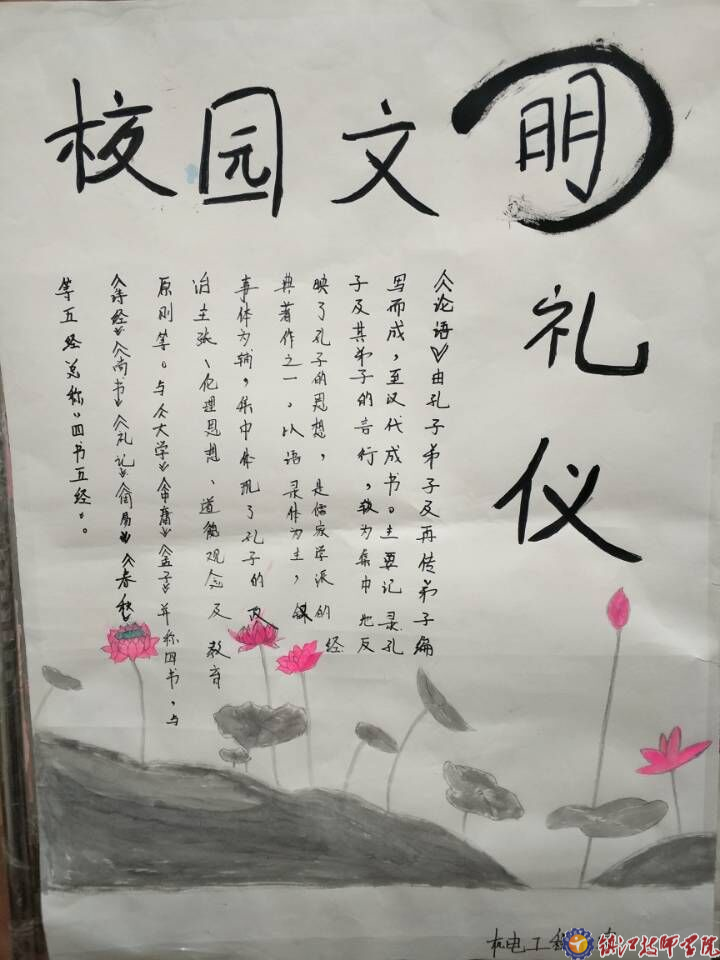 校园文明
礼仪
《论语》由孔子弟子及再传弟子编
写而成，至汉代成书。主要记录孔
子及其弟子的言行，较为集中地反
映了孔子的思想，是儒家学派的经
典著作之一。以语录体为主，
事体为辅，集中体现了孔子的政
治主张、伦理思想、道德观念及教育
原则等。与《大学》《中庸》《孟子》并称四书，与
《诗经》《尚书》《礼记》《周易》《春秋》
等五经总称“四书五经”。
机电工程
镇江技师学院